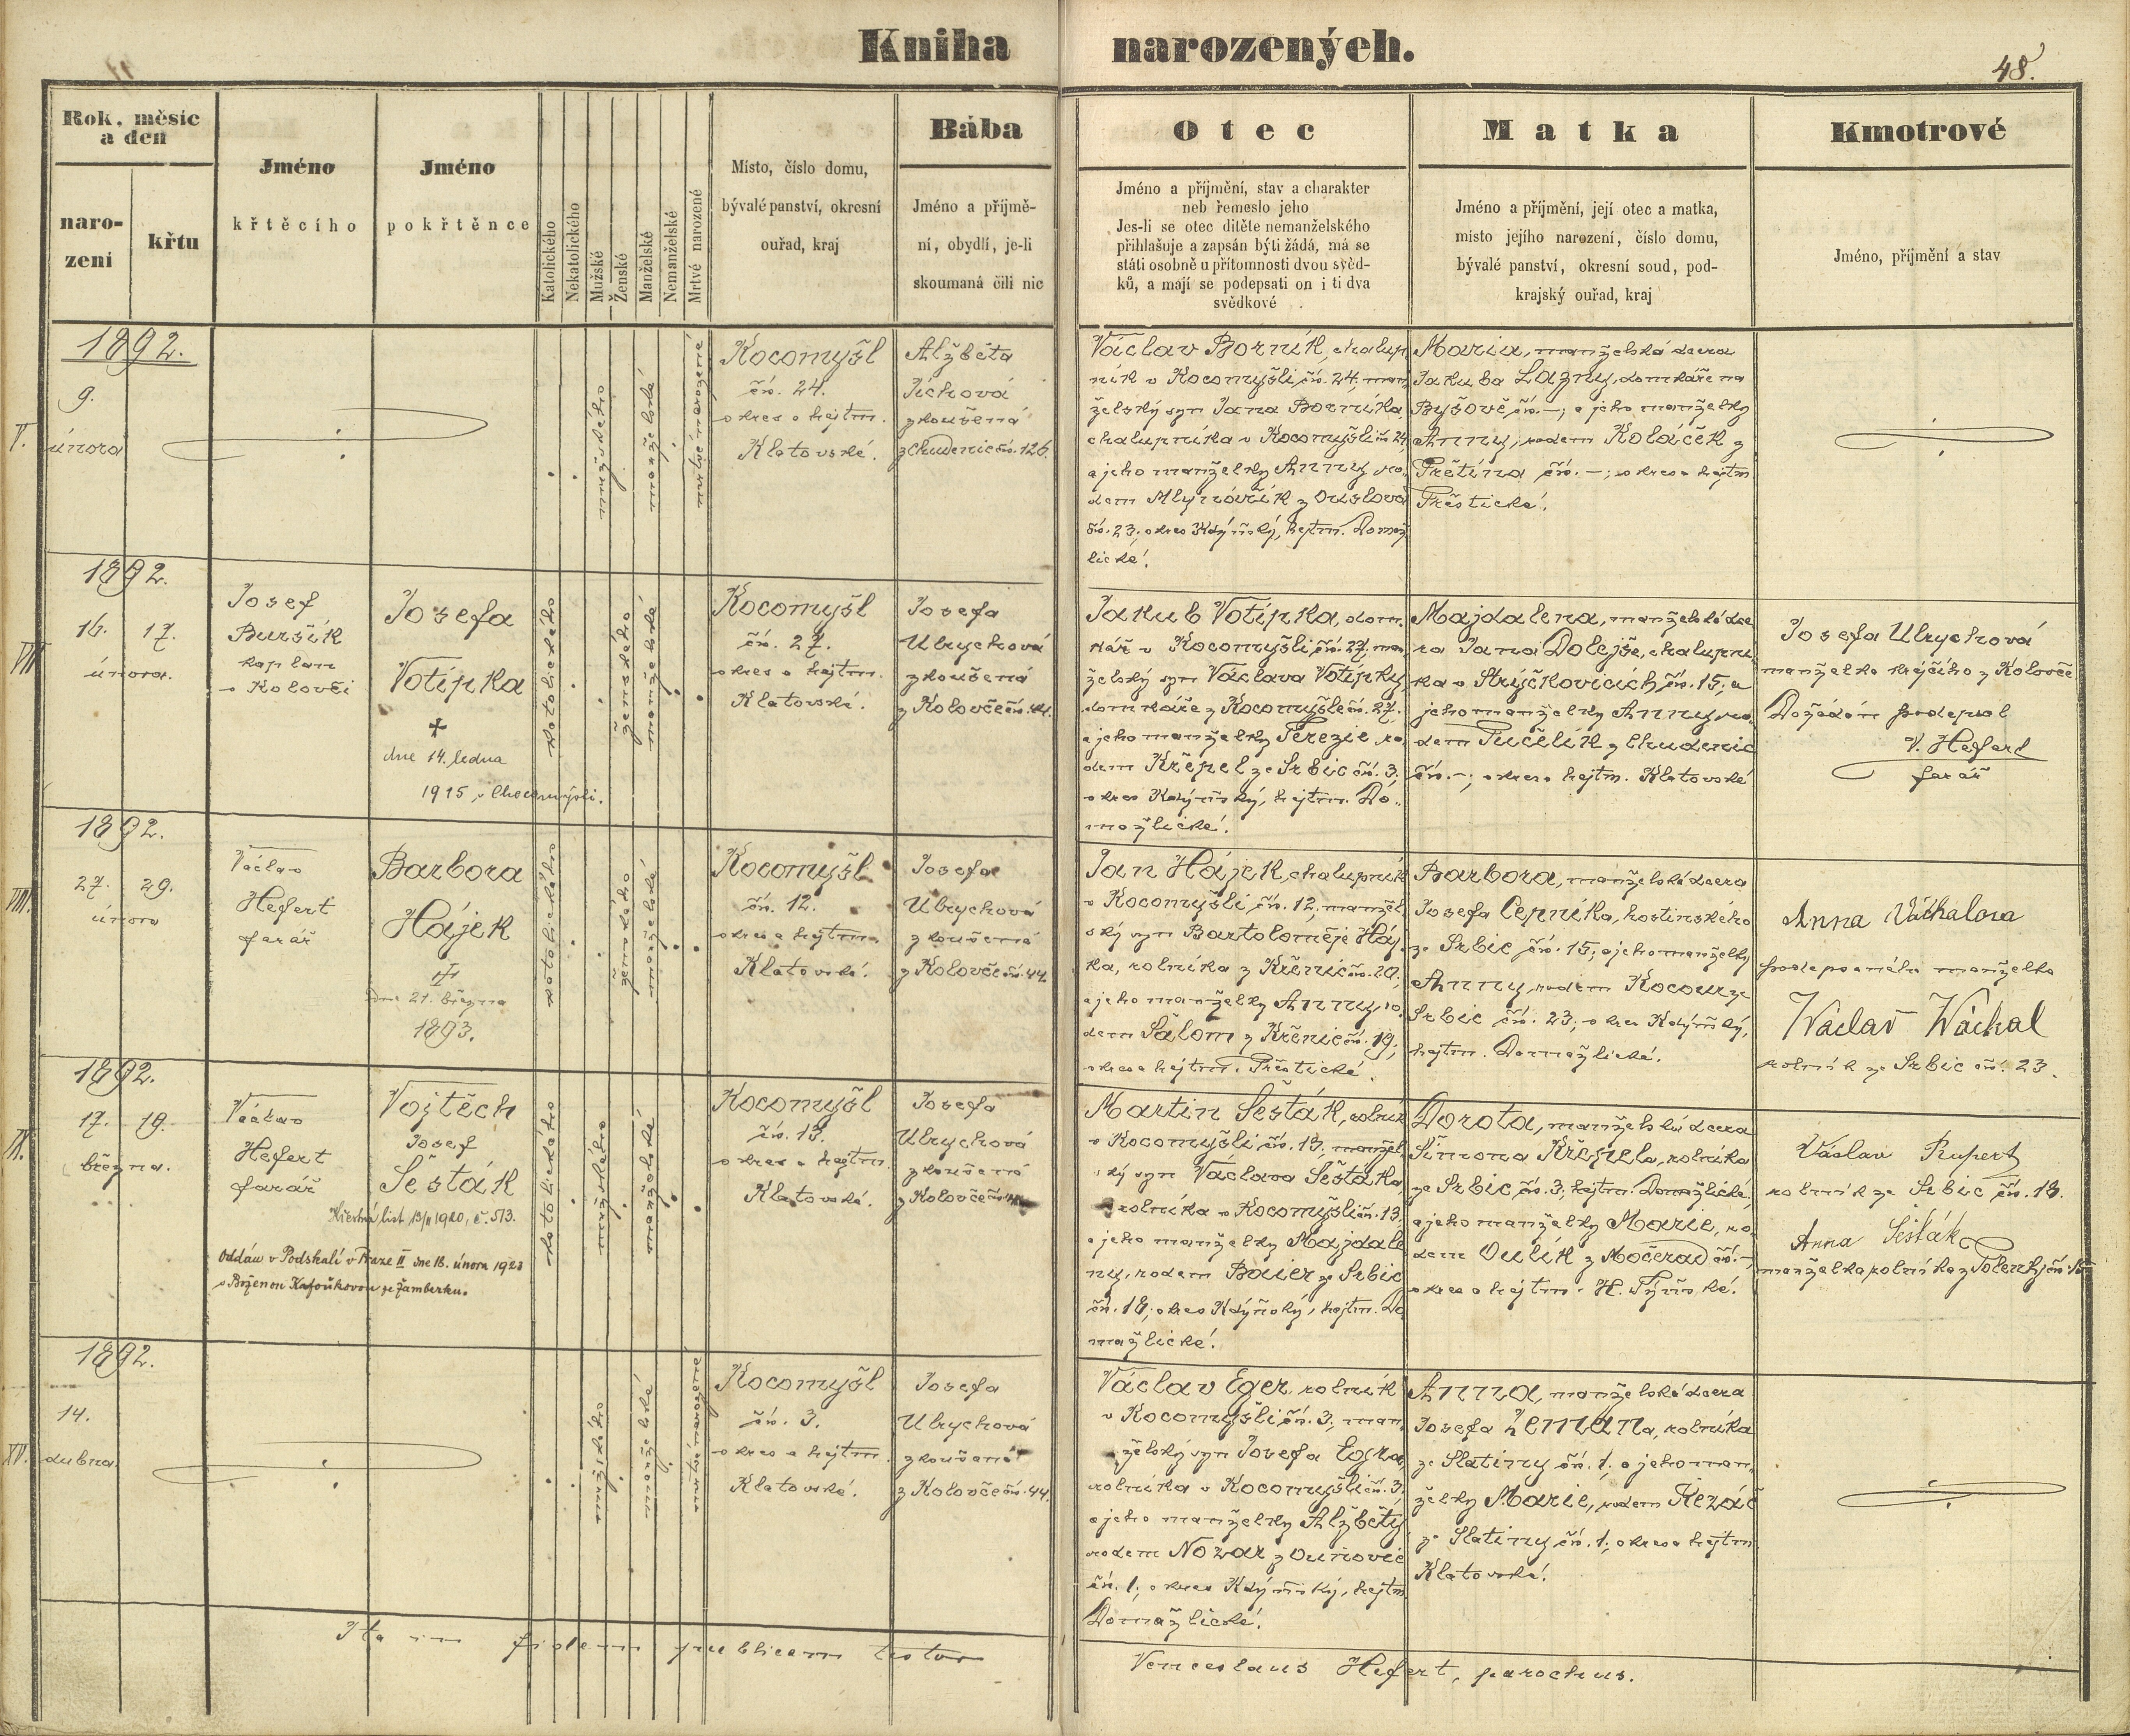 Kniha narozených.
48.
Rok, měsíc
a den
naro-
zení
křtu
Jméno
křtěcího
Jméno
pokřtěnce
Katolického
Nekatolického
Mužské
Ženské
Manželské
Nemanželské
Mrtvě narozené
Místo, číslo domu,
bývalé panství, okresní
ouřad, kraj
Bába
Jméno a příjmě-
ní, obydlí, je-li
skoumaná čili nic
Otec
Jméno a příjmění, stav a charakter
neb řemeslo jeho
Jes-li se otec dítěte nemanželského
přihlašuje a zapsán býti žádá, má se
státi osobně u přítomnosti dvou svěd-
ků, a mají se podepsati on i ti dva
svědkové
Matka
Jméno a příjmění, její otec a matka,
místo jejího narození, číslo domu,
bývalé panství, okresní soud, pod-
krajský ouřad, kraj
Kmotrové
Jméno, příjmění a stav
1892.
9.
února
mužského
manželské
mrtvě narozené
Kocomyšl
čís. 24.
okres a hejtm.
Klatovské.
Alžběta
Jíchová
zkoušená
z Chudenic čís. 126.
Václav Borník, chalup
ník v Kocomyšli čís. 24, man
želský syn Jana Borníka,
chalupníka v Kocomyšli čís. 24
a jeho manželky Anny, ro-
dem Mlynářík z Ouslova
čís. 23; okres Kdýňský, hejtm. Domaž
lické.
Maria, manželská dcera
Jakuba Lazny, domkáře na
Byšově čís. –; a jeho manželky
Anny, rodem Koláček z
Přetína čís. –; okres a hejtm
Přestické.
VII
1892.
16. 17.
února.
Josef
Buršík
kaplan
v Kolovči
Josefa
Votipka
+
dne 14. ledna
1915 v Chocomyšli.
katolického
ženského
manželské
Kocomyšl
čís. 27.
okres a hejtm.
Klatovské.
Josefa
Ulrychová
zkoušená
z Kolovče čís. 44.
Jakub Votipka, dom-
kář v Kocomyšli čís. 27, man
želský syn Václava Votipky,
domkáře z Kocomyšle čís. 27.
a jeho manželky Terezie, ro-
dem Křepel ze Srbic čís. 3;
okres Kdýňský, hejtm. Do-
možlické.
Majdalena, manželská dce
ra Jana Dolejše, chalupní
ka v Strýčkovicích čís. 15; a
jeho manželky Anny, ro-
dem Tučelík z Chudenic
čís. –; okres a hejtm. Klatovské
Josefa Ulrychová
manželka krejčího z Kolovče
Dožádán podepsal
V. Hefert
farář
VIII.
1892.
27. 29.
února
Václav
Hefert
farář
Barbora
Hájek
dne 21. března
1893.
katolického
ženského
manželské
Kocomyšl
čís. 12.
okres a hejtm.
Klatovské.
Josefa
Ulrychová
zkoušená
z Kolovče čís. 44.
Jan Hájek, chalupník
v Kocomyšli čís. 12, manžel
ský syn Bartoloměje Háj-
ka, rolníka z Křenic čís. 20;
a jeho manželky Anny, ro-
dem Šálom z Křenic čís. 19;
okres a hejtm. Přestické.
Barbora, manželská dcera
Josefa Cepníka, hostinského
ze Srbic čís. 15; a jeho manželky
Anny, rodem Kocour ze
Srbic čís. 23; okres Kdýňský,
hejtm. Domažlické.
Anna Váchalova
podepsaného manželka
Wáclav Wáchal
rolník ze Srbic čís. 23.
IX.
1892.
17. 19.
března.
Václav
Hefert
farář
Vojtěch
Josef
Šesták
Křestní list 13/II 1920, č. 513.
Oddán v Podskalí v Praze II dne 16. února 1920
s Boženou Kafoukovou ze Žamberku.
katolického
mužského
manželské
Kocomyšl
čís. 13.
okres a hejtm.
Klatovské.
Josefa
Ulrychová
zkoušená
z Kolovče čís. 44.
Martin Šesták, rolník
v Kocomyšli čís. 13, manžel
ský syn Václava Šestáka,
rolníka v Kocomyšli čís. 13,
a jeho manželky Majdale
ny, rodem Baier ze Srbic
čís. 18; okres Kdýňský, hejtm. Do
mažlické.
Dorota, manželská dcera
Šimona Křepela, rolníka
ze Srbic čís. 3; hejtm. Domažlické,
a jeho manželky Marie, ro-
dem Oulík z Močerad čís. –;
okres a hejtm. H. Týnské.
Václav Rupert
rolník ze Srbic čís. 18.
Anna Šesták
manželka rolníka z Polenky čís. 15
XV.
1892.
14.
dubna.
mužského
manželské
mrtvě narozené
Kocomyšl
čís. 3.
okres a hejtm.
Klatovské.
Josefa
Ulrychová
zkoušená
z Kolovče čís. 44.
Václav Eger, rolník
v Kocomyšli čís. 3, man-
želský syn Josefa Egra,
rolníka v Kocomyšli čís. 3,
a jeho manželky Alžběty
rodem Nozar z Ouňovic
čís. 1; okres Kdýňský, hejtm
Domažlické.
Anna, manželská dcera
Josefa Zemana, rolníka
ze Slatiny čís. 1; a jeho man-
želky Marie, rodem Řezáč
ze Slatiny čís. 1; okres a hejtm
Klatovské.
Ita in fidem publicam testor
Venceslaus Hefert, parochus.